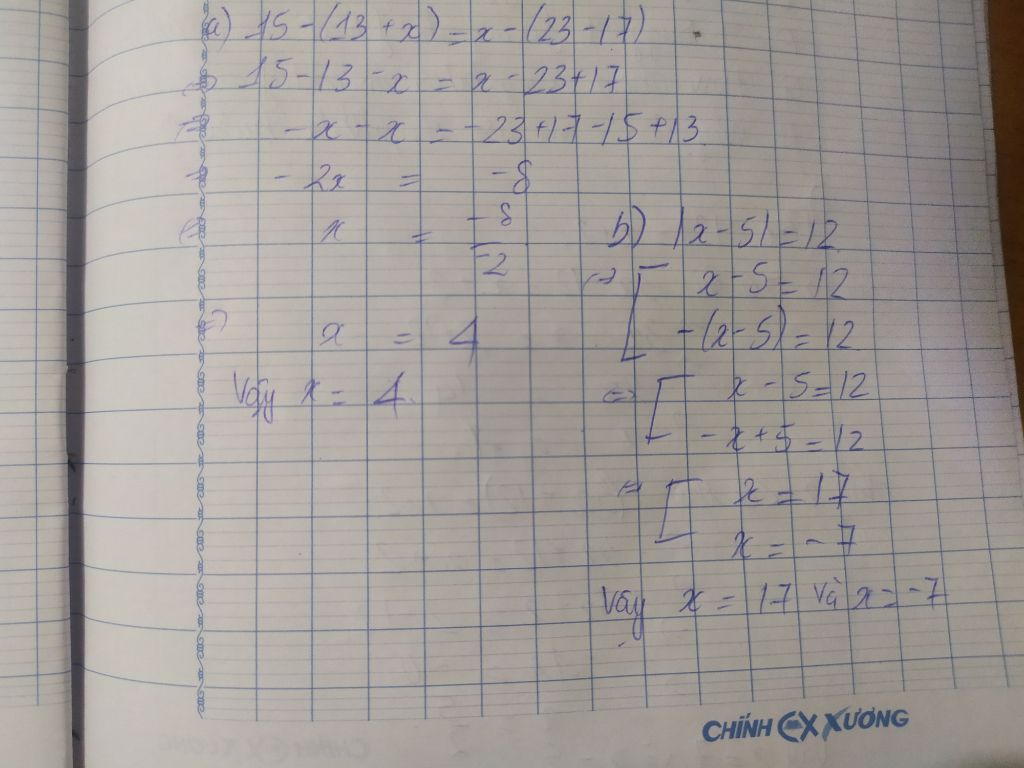 a) 15-(13+x)=x-(23-17)
⇔ 15-13-x = x-23+17
⇔ -x-x = -23+17-15+13
⇔ -2x = -8
⇔ x = -8/-2
⇔ x = 4
Vậy x = 4.
b) |x-5|=12
⇔ [ x-5=12
-(x-5)=12
⇔ [ x-5=12
-x+5=12
⇔ [ x=17
x=-7
Vậy x=17 và x=-7
CHÍNH EX XƯƠNG